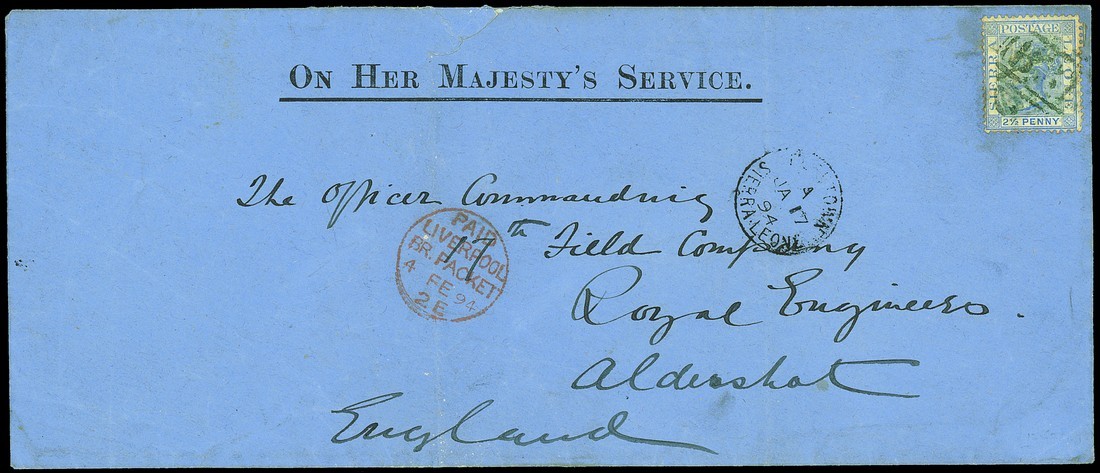 POSTAGE
SIERRA LEONE
2½ PENNY
ON HER MAJESTY'S SERVICE.
FREETOWN
A
JA 17
94
SIERRA-LEONE
The Officer Commanding
17th Field Company
Royal Engineers.
Aldershot
England
PAID
LIVERPOOL
BR. PACKET
4 FE 94
2E